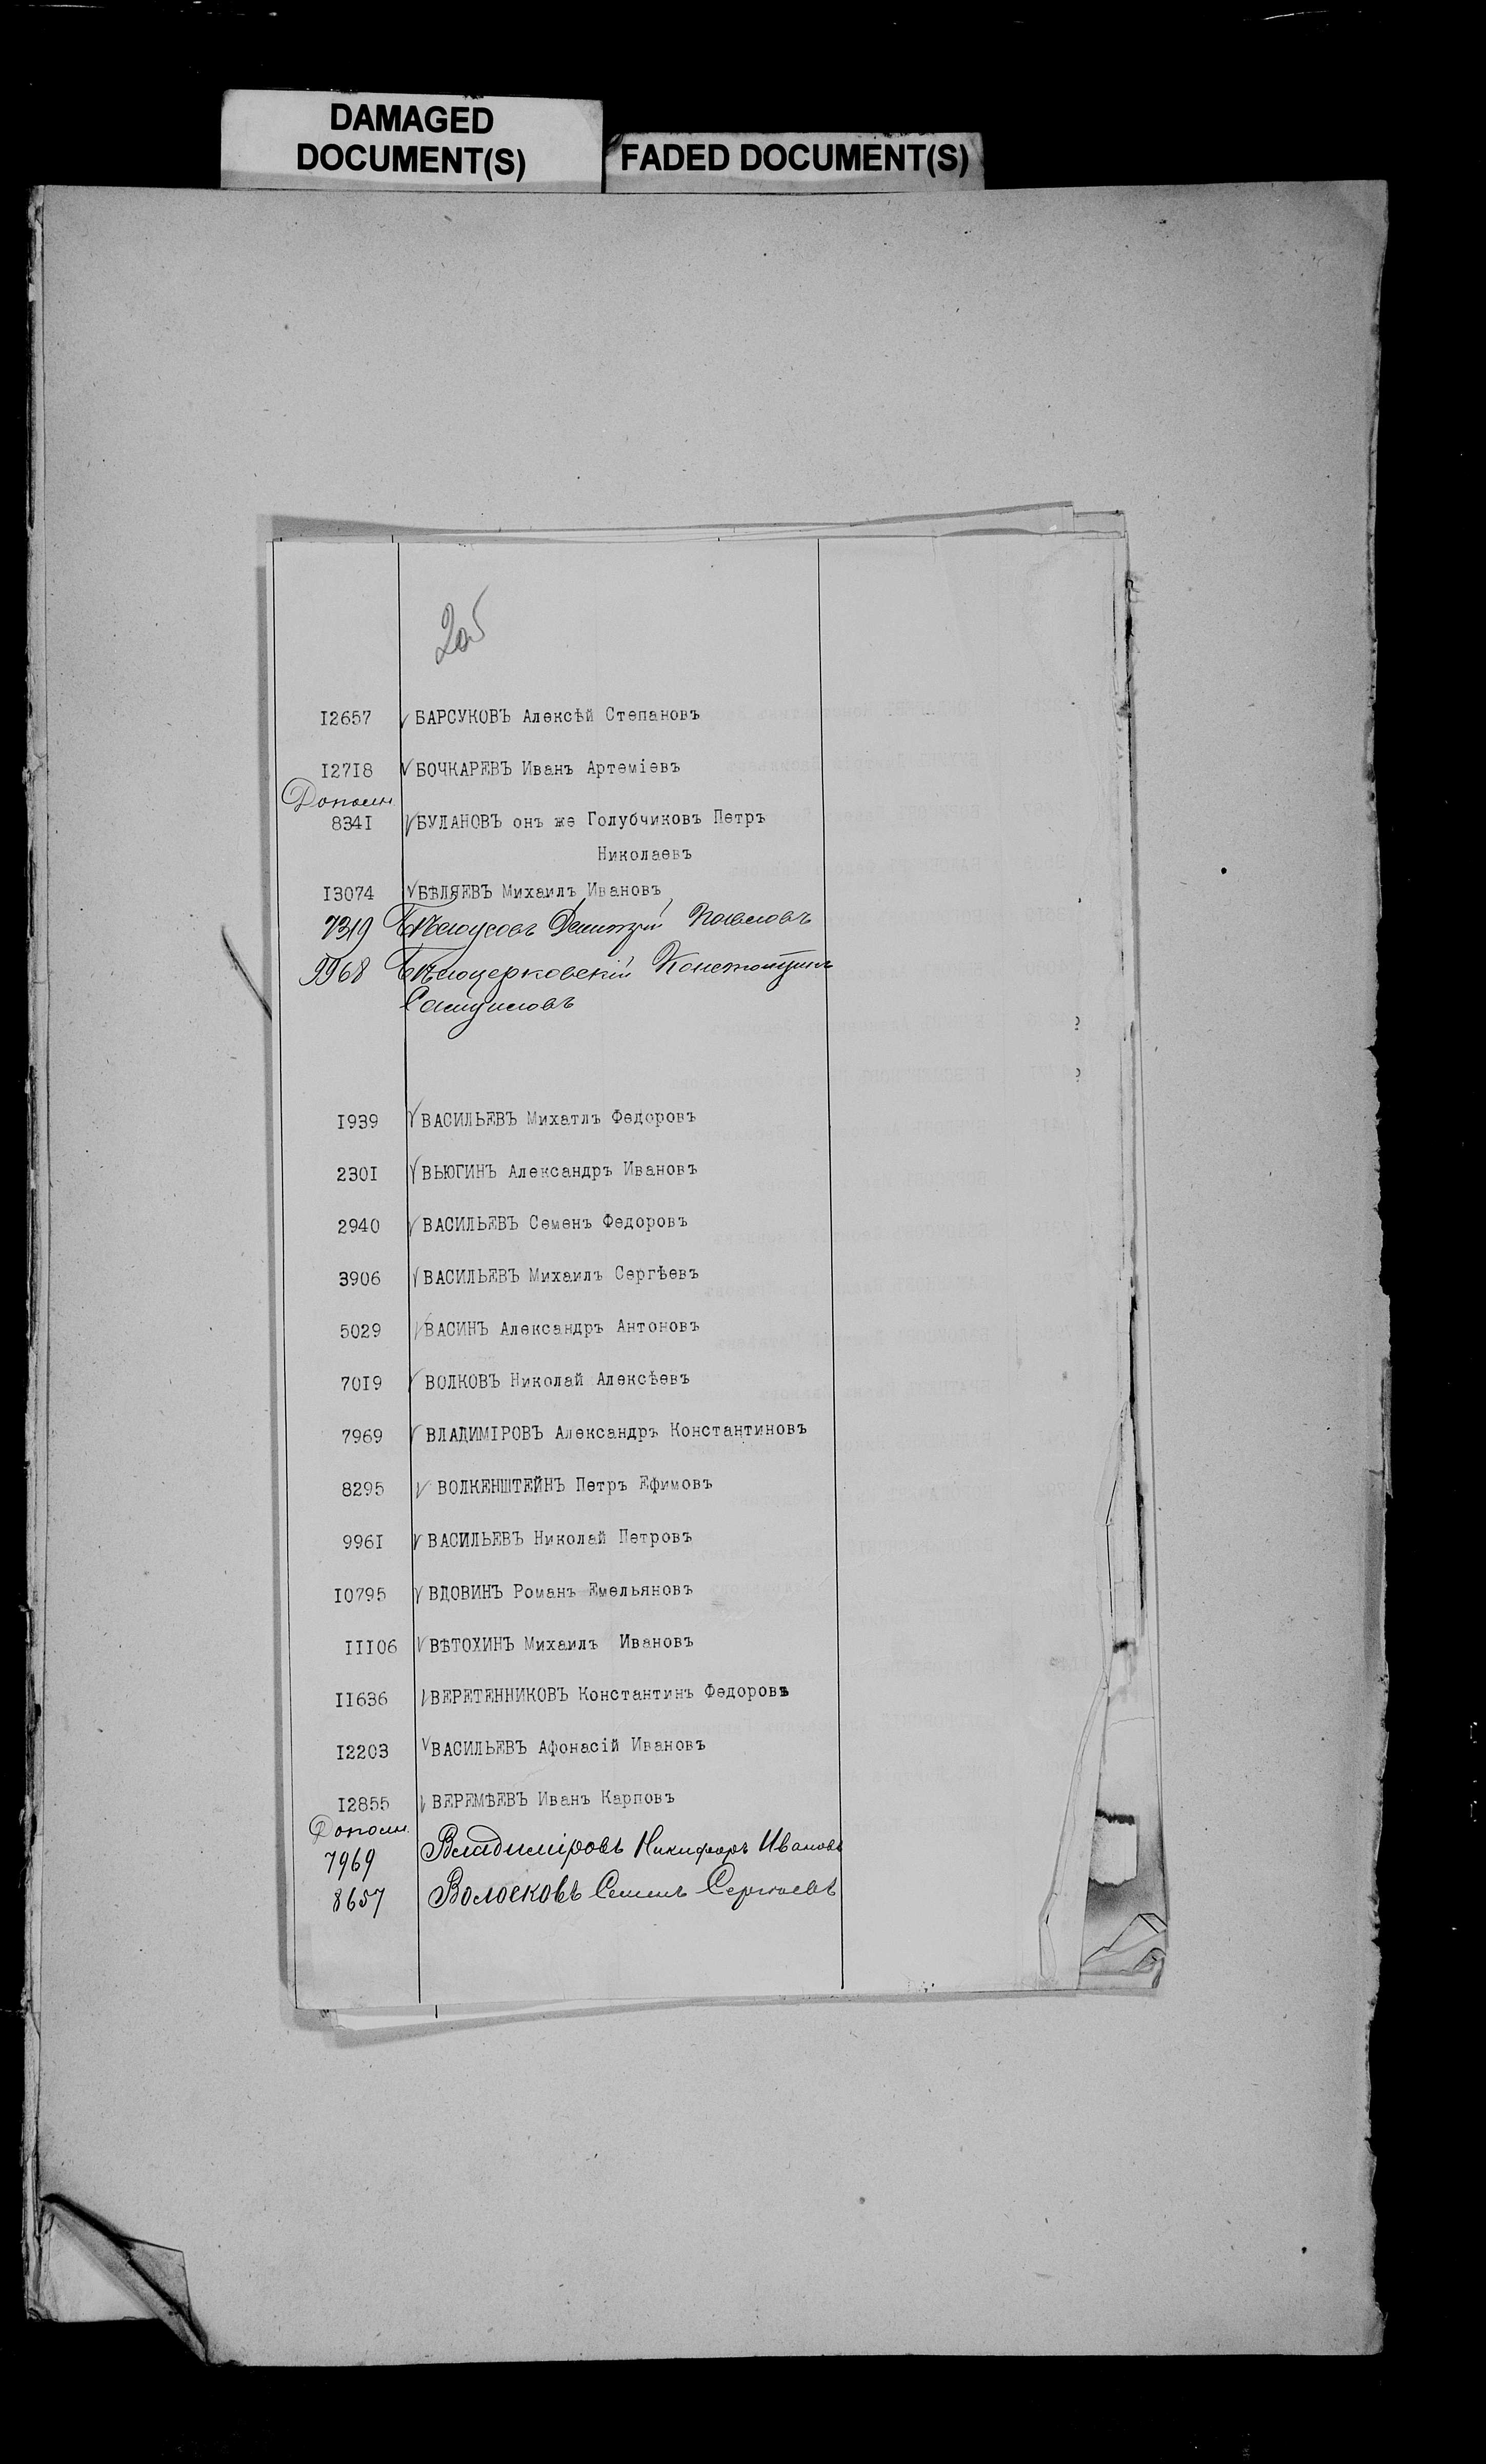 DAMAGED
DOCUMENT(S)
FADED DOCUMENT(S)
I2657 БАРСУКОВЪ Алексѣй Степановъ
I27I8 БОЧКАРЕВЪ Иванъ Артеміевъ
Дополн.
834I БУЛАНОВЪ онъ же Голубчиковъ Петръ
Николаевъ
I3074 БѢЛЯЕВЪ Михаилъ Ивановъ
7319 Бѣлоусовъ Дмитрій Павловъ
9968 Бѣлоцерковскій Константинъ
Самуиловъ
I939 ВАСИЛЬЕВЪ Михатлъ Федоровъ
230I ВЬЮГИНЪ Александръ Ивановъ
2940 ВАСИЛЬЕВЪ Семенъ Федоровъ
3906 ВАСИЛЬЕВЪ Михаилъ Сергѣевъ
5029 ВАСИНЪ Александръ Антоновъ
70I9 ВОЛКОВЪ Николай Алексѣевъ
7969 ВЛАДИМІРОВЪ Александръ Константиновъ
8295 ВОЛКЕНШТЕЙНЪ Петръ Ефимовъ
996I ВАСИЛЬЕВЪ Николай Петровъ
I0795 ВДОВИНЪ Романъ Емельяновъ
III06 ВѢТОХИНЪ Михаилъ Ивановъ
II636 ВЕРЕТЕННИКОВЪ Константинъ Федоровъ
I2203 ВАСИЛЬЕВЪ Афонасій Ивановъ
I2855 ВЕРЕМѢЕВЪ Иванъ Карповъ
Дополн.
7969 Владиміровъ Никифоръ Ивановъ
8657 Волосковъ Семенъ Сергѣевъ